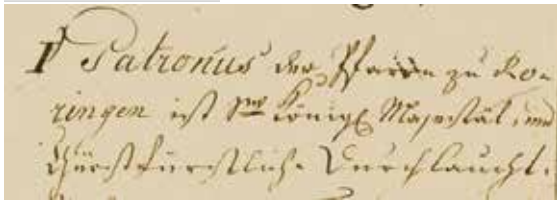 1 Patronus der Pfarre zu Ro-
ringen ist Sr Königl Majestät, und
Chürfürstliche Durchlaucht.